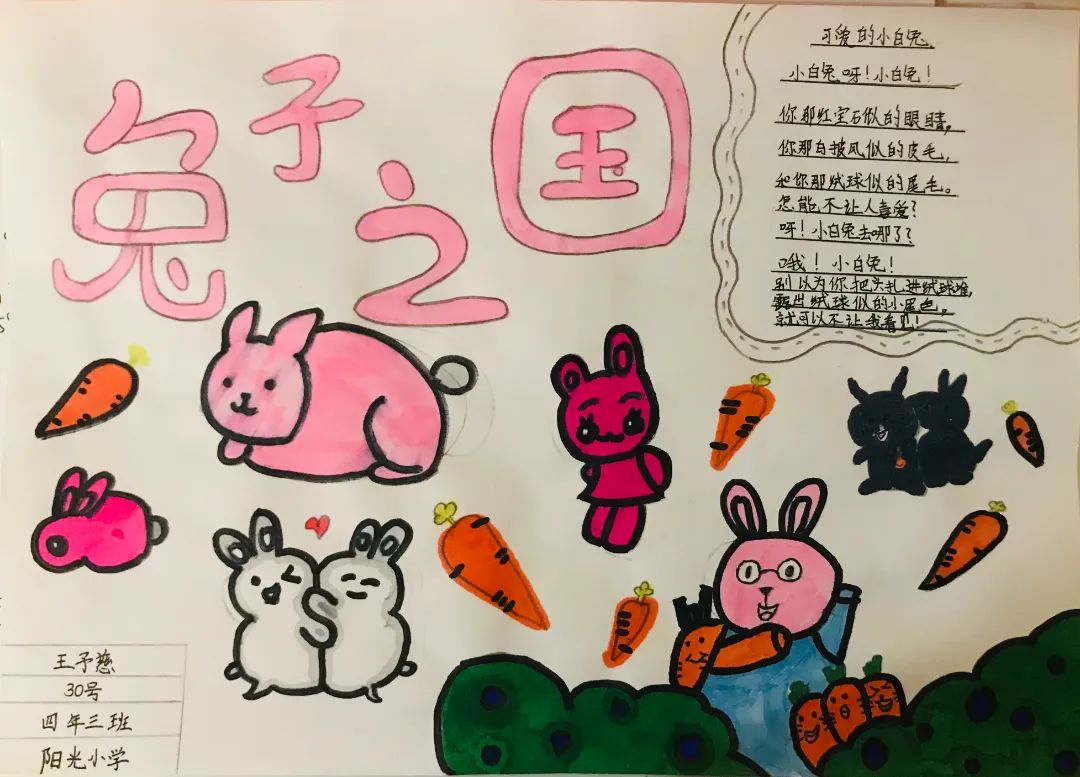 兔子之国
可爱的小白兔
小白兔呀！小白兔！
你那红宝石似的眼睛，
你那白披风似的皮毛，
和你那绒球似的尾毛。
怎能不让人喜爱？
呀！小白兔去哪了？
哦！小白兔！
别以为你把头扎进绒球堆，
露出绒球似的小尾巴，
就可以不让我看见！
王予慈
30号
四年三班
阳光小学